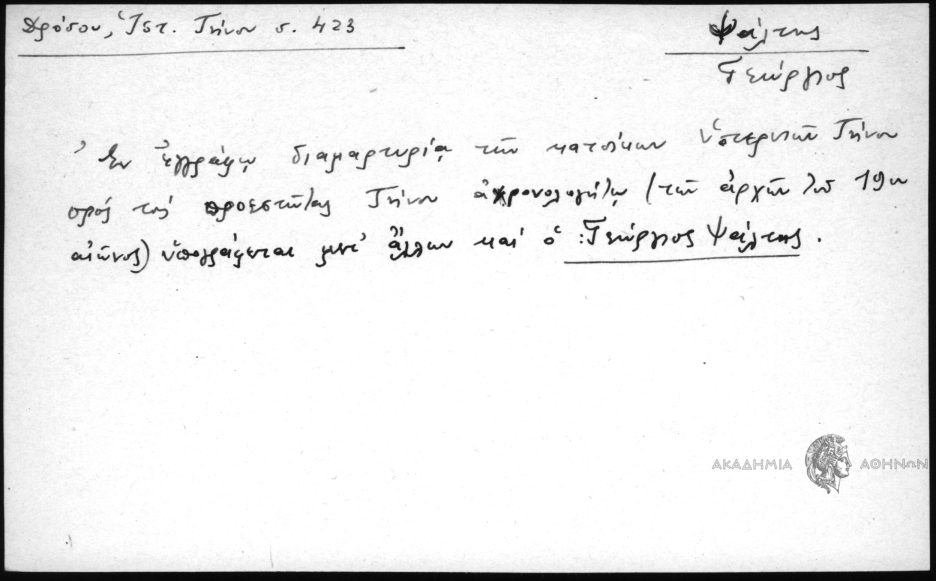 Δρόσου, Ἱστ. Τήνου σ. 423
Ψάλτης
Γεώργιος
Ἐν ἐγγράφῳ διαμαρτυρίᾳ τῶν κατοίκων Ὑστερνίων Τήνου
πρός τούς προεστῶτας Τήνου ἀχρονολογήτῳ (τῶν ἀρχῶν τοῦ 19ου
αἰῶνος) ὑπογράφεται μετ' ἄλλων καί ὁ : Γεώργιος Ψάλτης.
ΑΚΑΔΗΜΙΑ ΑΘΗΝΩΝ